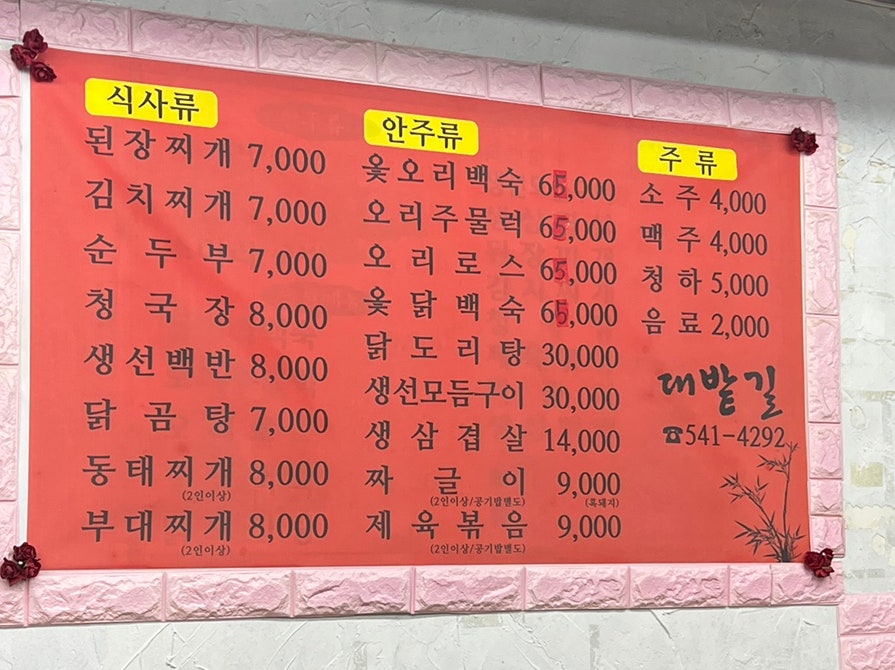 식사류
된장찌개 7,000
김치찌개 7,000
순두부 7,000
청국장 8,000
생선백반 8,000
닭곰탕 7,000
동태찌개 8,000
(2인이상)
부대찌개 8,000
(2인이상)
안주류
옻오리백숙 65,000
오리주물럭 65,000
오리로스 65,000
옻닭백숙 65,000
닭도리탕 30,000
생선모듬구이 30,000
생삼겹살 14,000
짜글이 9,000
(2인이상/공기밥별도) (흑돼지)
제육볶음 9,000
(2인이상/공기밥별도)
주류
소주 4,000
맥주 4,000
청하 5,000
음료 2,000
대밭길
☎541-4292